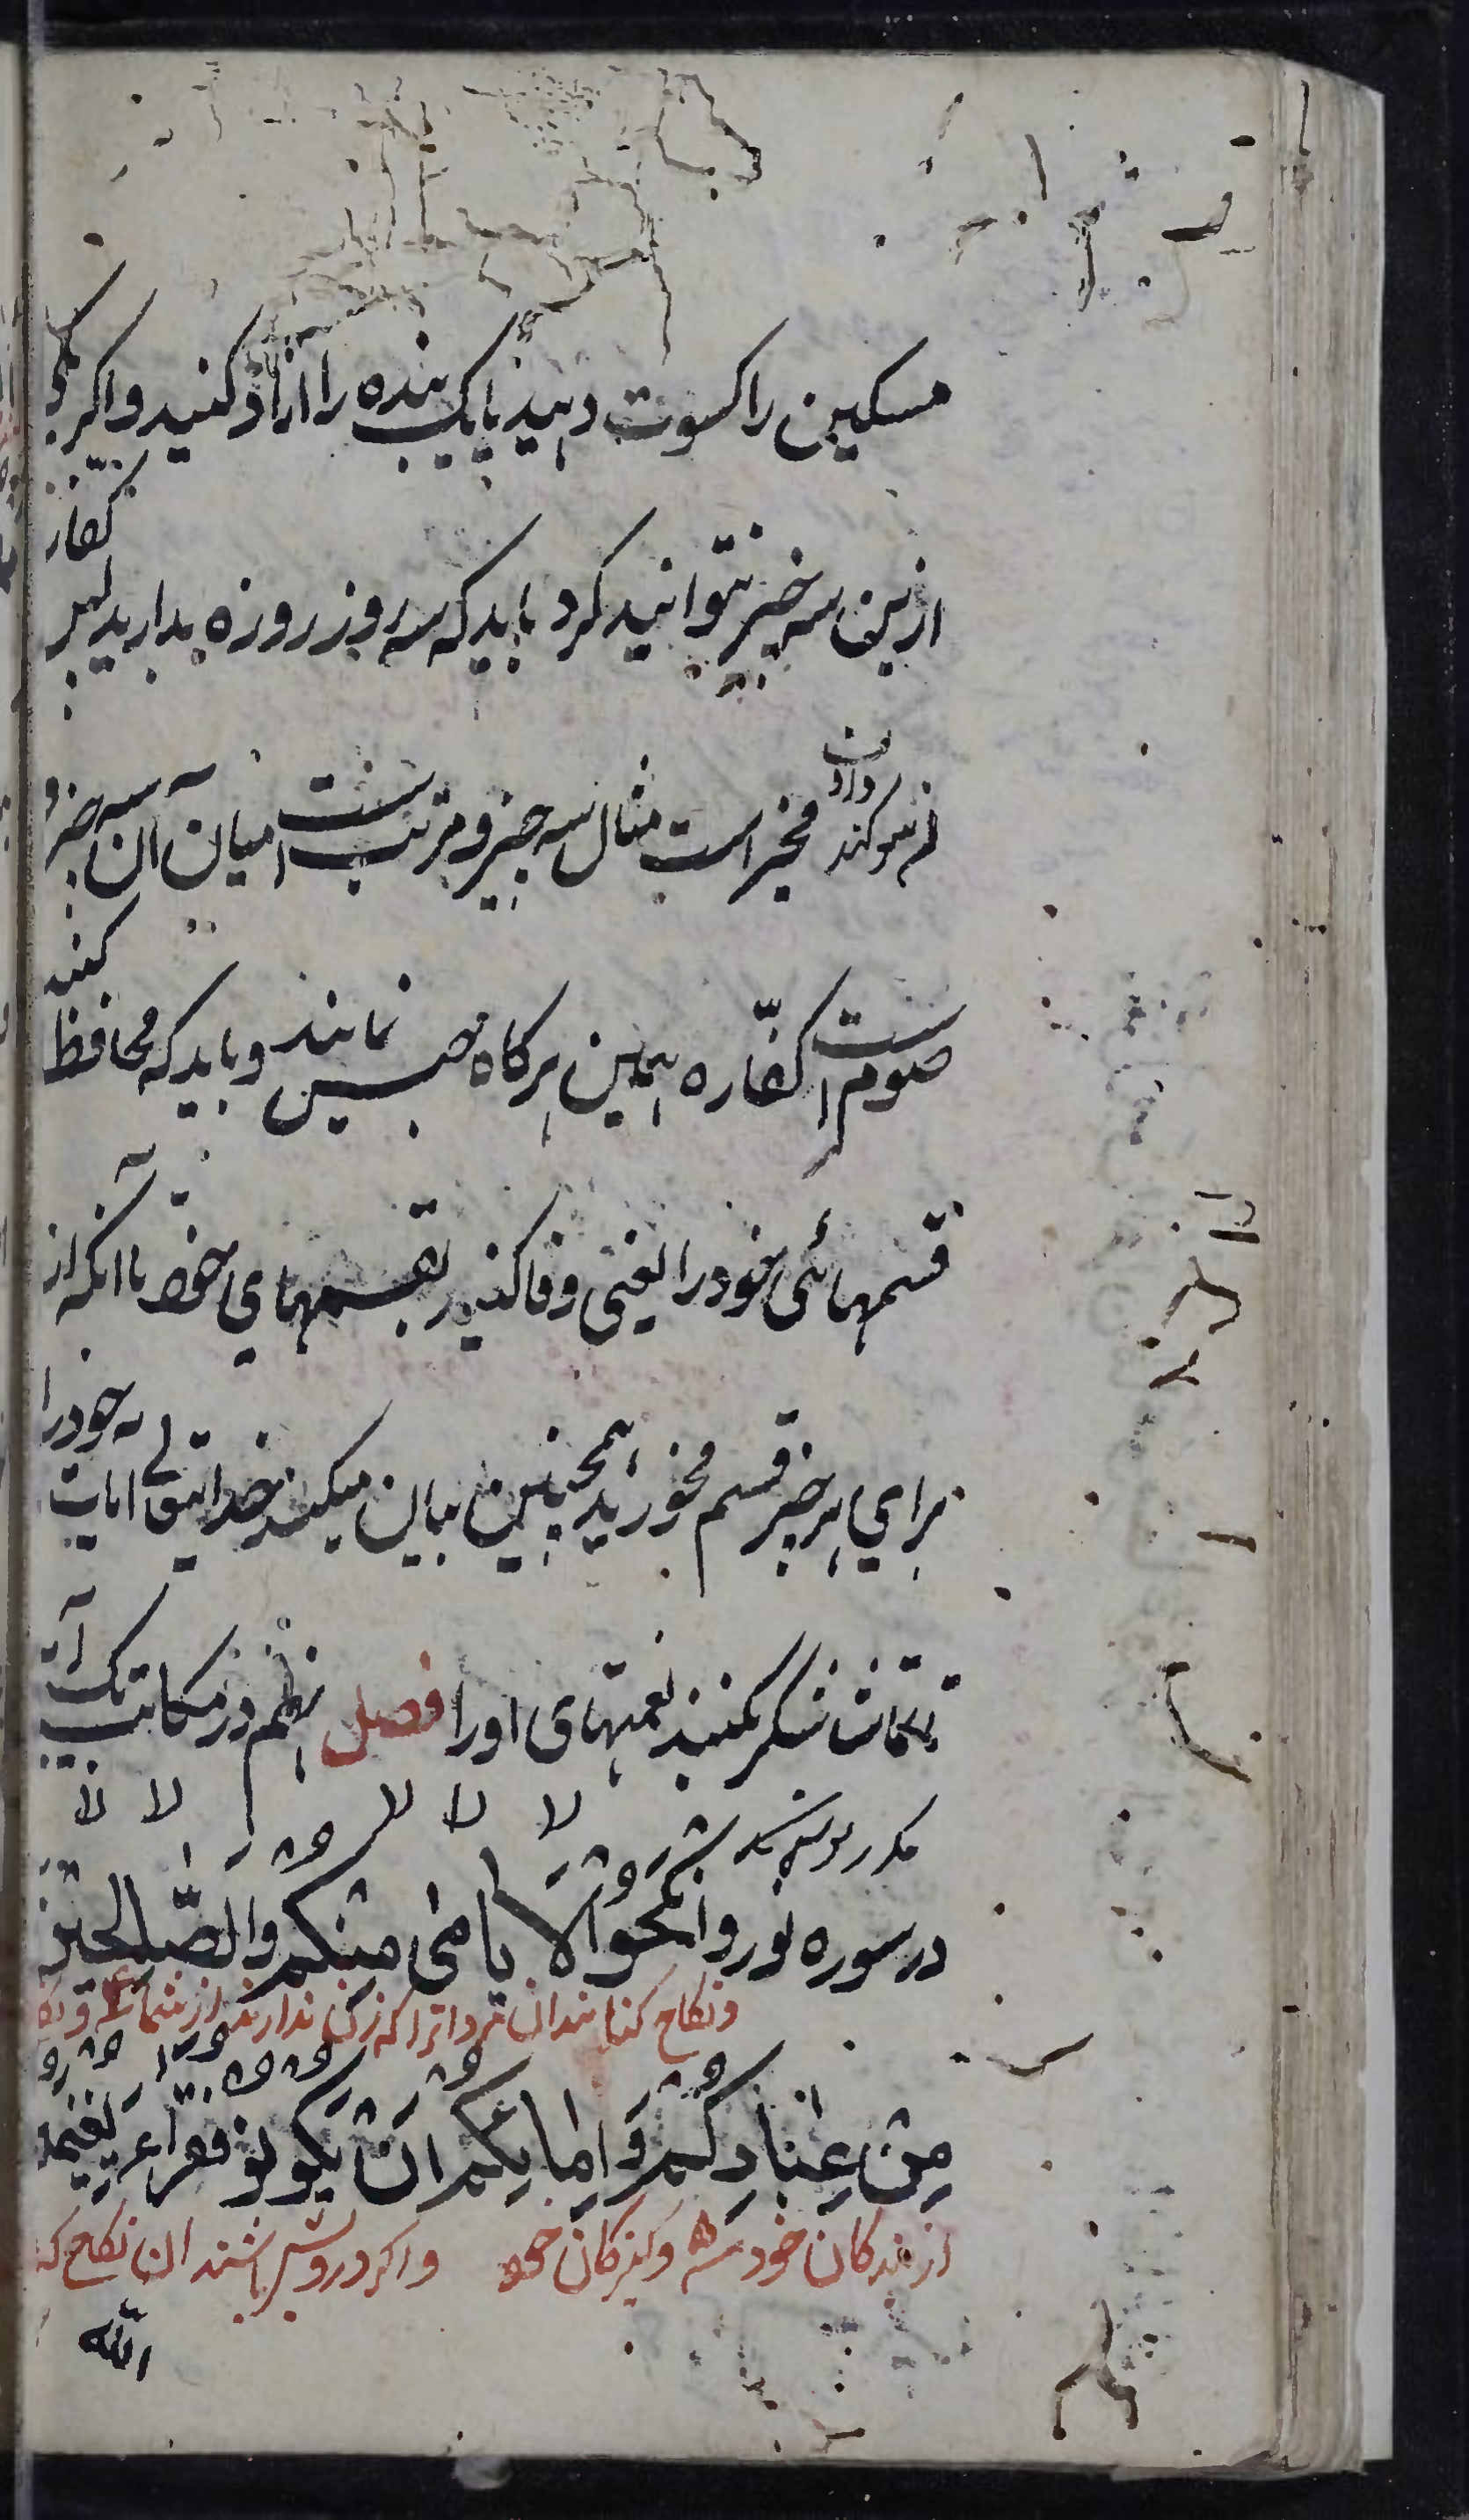 مسکین را کسوت دهید یا یک بنده را ازاد کنید و اکر یکی
ازین سه چیز نتوانید کرد باید که سه روز روزه بدارید پس کفارت
سوکند دادن مخیر است مثال سه چیز و مرتب است میان آن سه چیز و
صوم است کفاره همین هرکاه نمایند و باید که محافظت کنید
قسمهائی خود را یعنی وفا کنید بقسمهای خود یا آنکه از
برای هر چیز قسم مخورید همچنین بیان میکند خدایتعالی ایات خود را
شکر بکنید نعمتهای او را فصل نهم در مکاتبت
در سوره نور وانکحوا الایامی منکم والصلحین
و نکاح کنانید ان مردانرا که زن ندارند از شما
من عبادکم وامایکم ان یکونو فقراء یغنیهم
از بندکان خود و کنیزکان خود و اکر درویش باشند ان نکاح که
الله